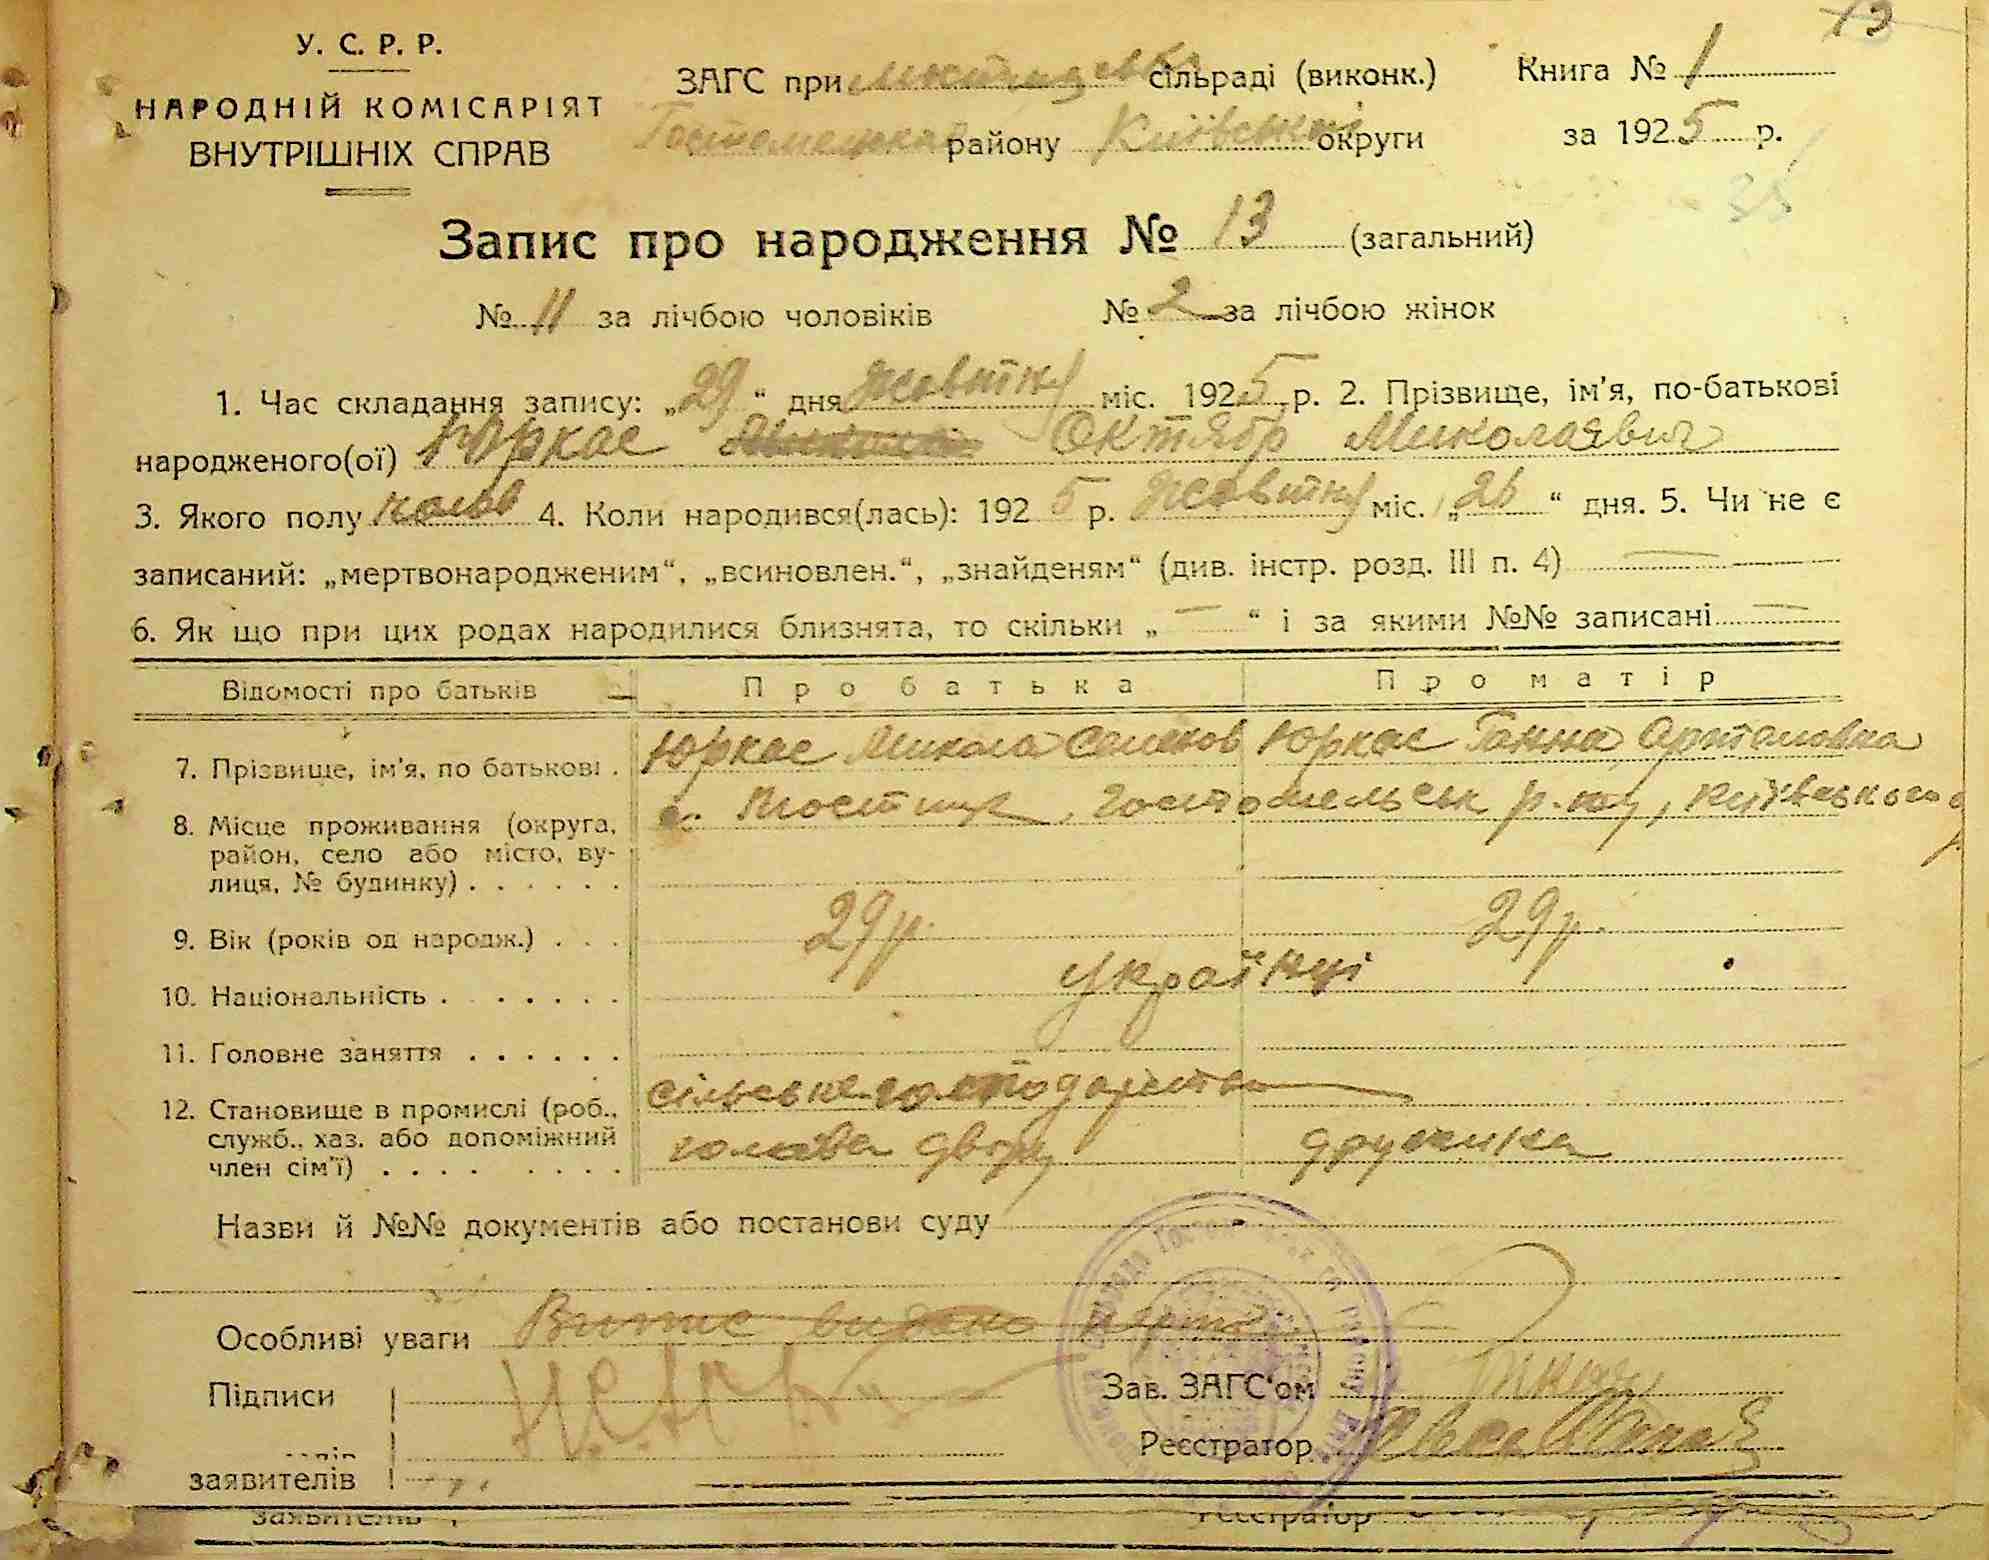 13
У. С. Р. Р.
НАРОДНІЙ КОМІСАРІЯТ
ВНУТРІШНІХ СПРАВ
ЗАГС при сільраді (виконк.) Книга № 1
району Київської округи за 1925 р.
35
Запис про народження № 13 (загальний)
№ 11 за лічбою чоловіків № 2 за лічбою жінок
1. Час складання запису: „29“ дня жовтня міс. 1925 р. 2. Прізвище, ім'я, по-батькові
народженого(ої) Юркас Октябр Миколаявич
3. Якого полу 4. Коли народився(лась): 1925 р. жовтня міс. „26“ дня. 5. Чи не є
записаний: „мертвонародженим“, „всиновлен.“, „знайденям“ (див. інстр. розд. III п. 4) —
6. Як що при цих родах народилися близнята, то скільки „—“ і за якими №№ записані —
Відомості про батьків Про батька Про матір
7. Прізвище, ім'я, по батькові . Юркас Микола Семенов Юркас Ганна Артемовна
8. Місце проживання (округа, с. Мостище, Гостомельськ р-ну, Київського
район, село або місто, ву-
лиця, № будинку) . . . . . .
9. Вік (років од народж.) . . . 29 р. 29 р.
10. Національність . . . . . . . українці
11. Головне заняття . . . . . .
сільське господарство
12. Становище в промислі (роб., голова двору дружина
служб., хаз. або допоміжний
член сім'ї) . . . . . . . .
Назви й №№ документів або постанови суду
Особливі уваги Витис видано
Підписи Зав. ЗАГС'ом
Реєстратор
заявителів
заявителів Реєстратор